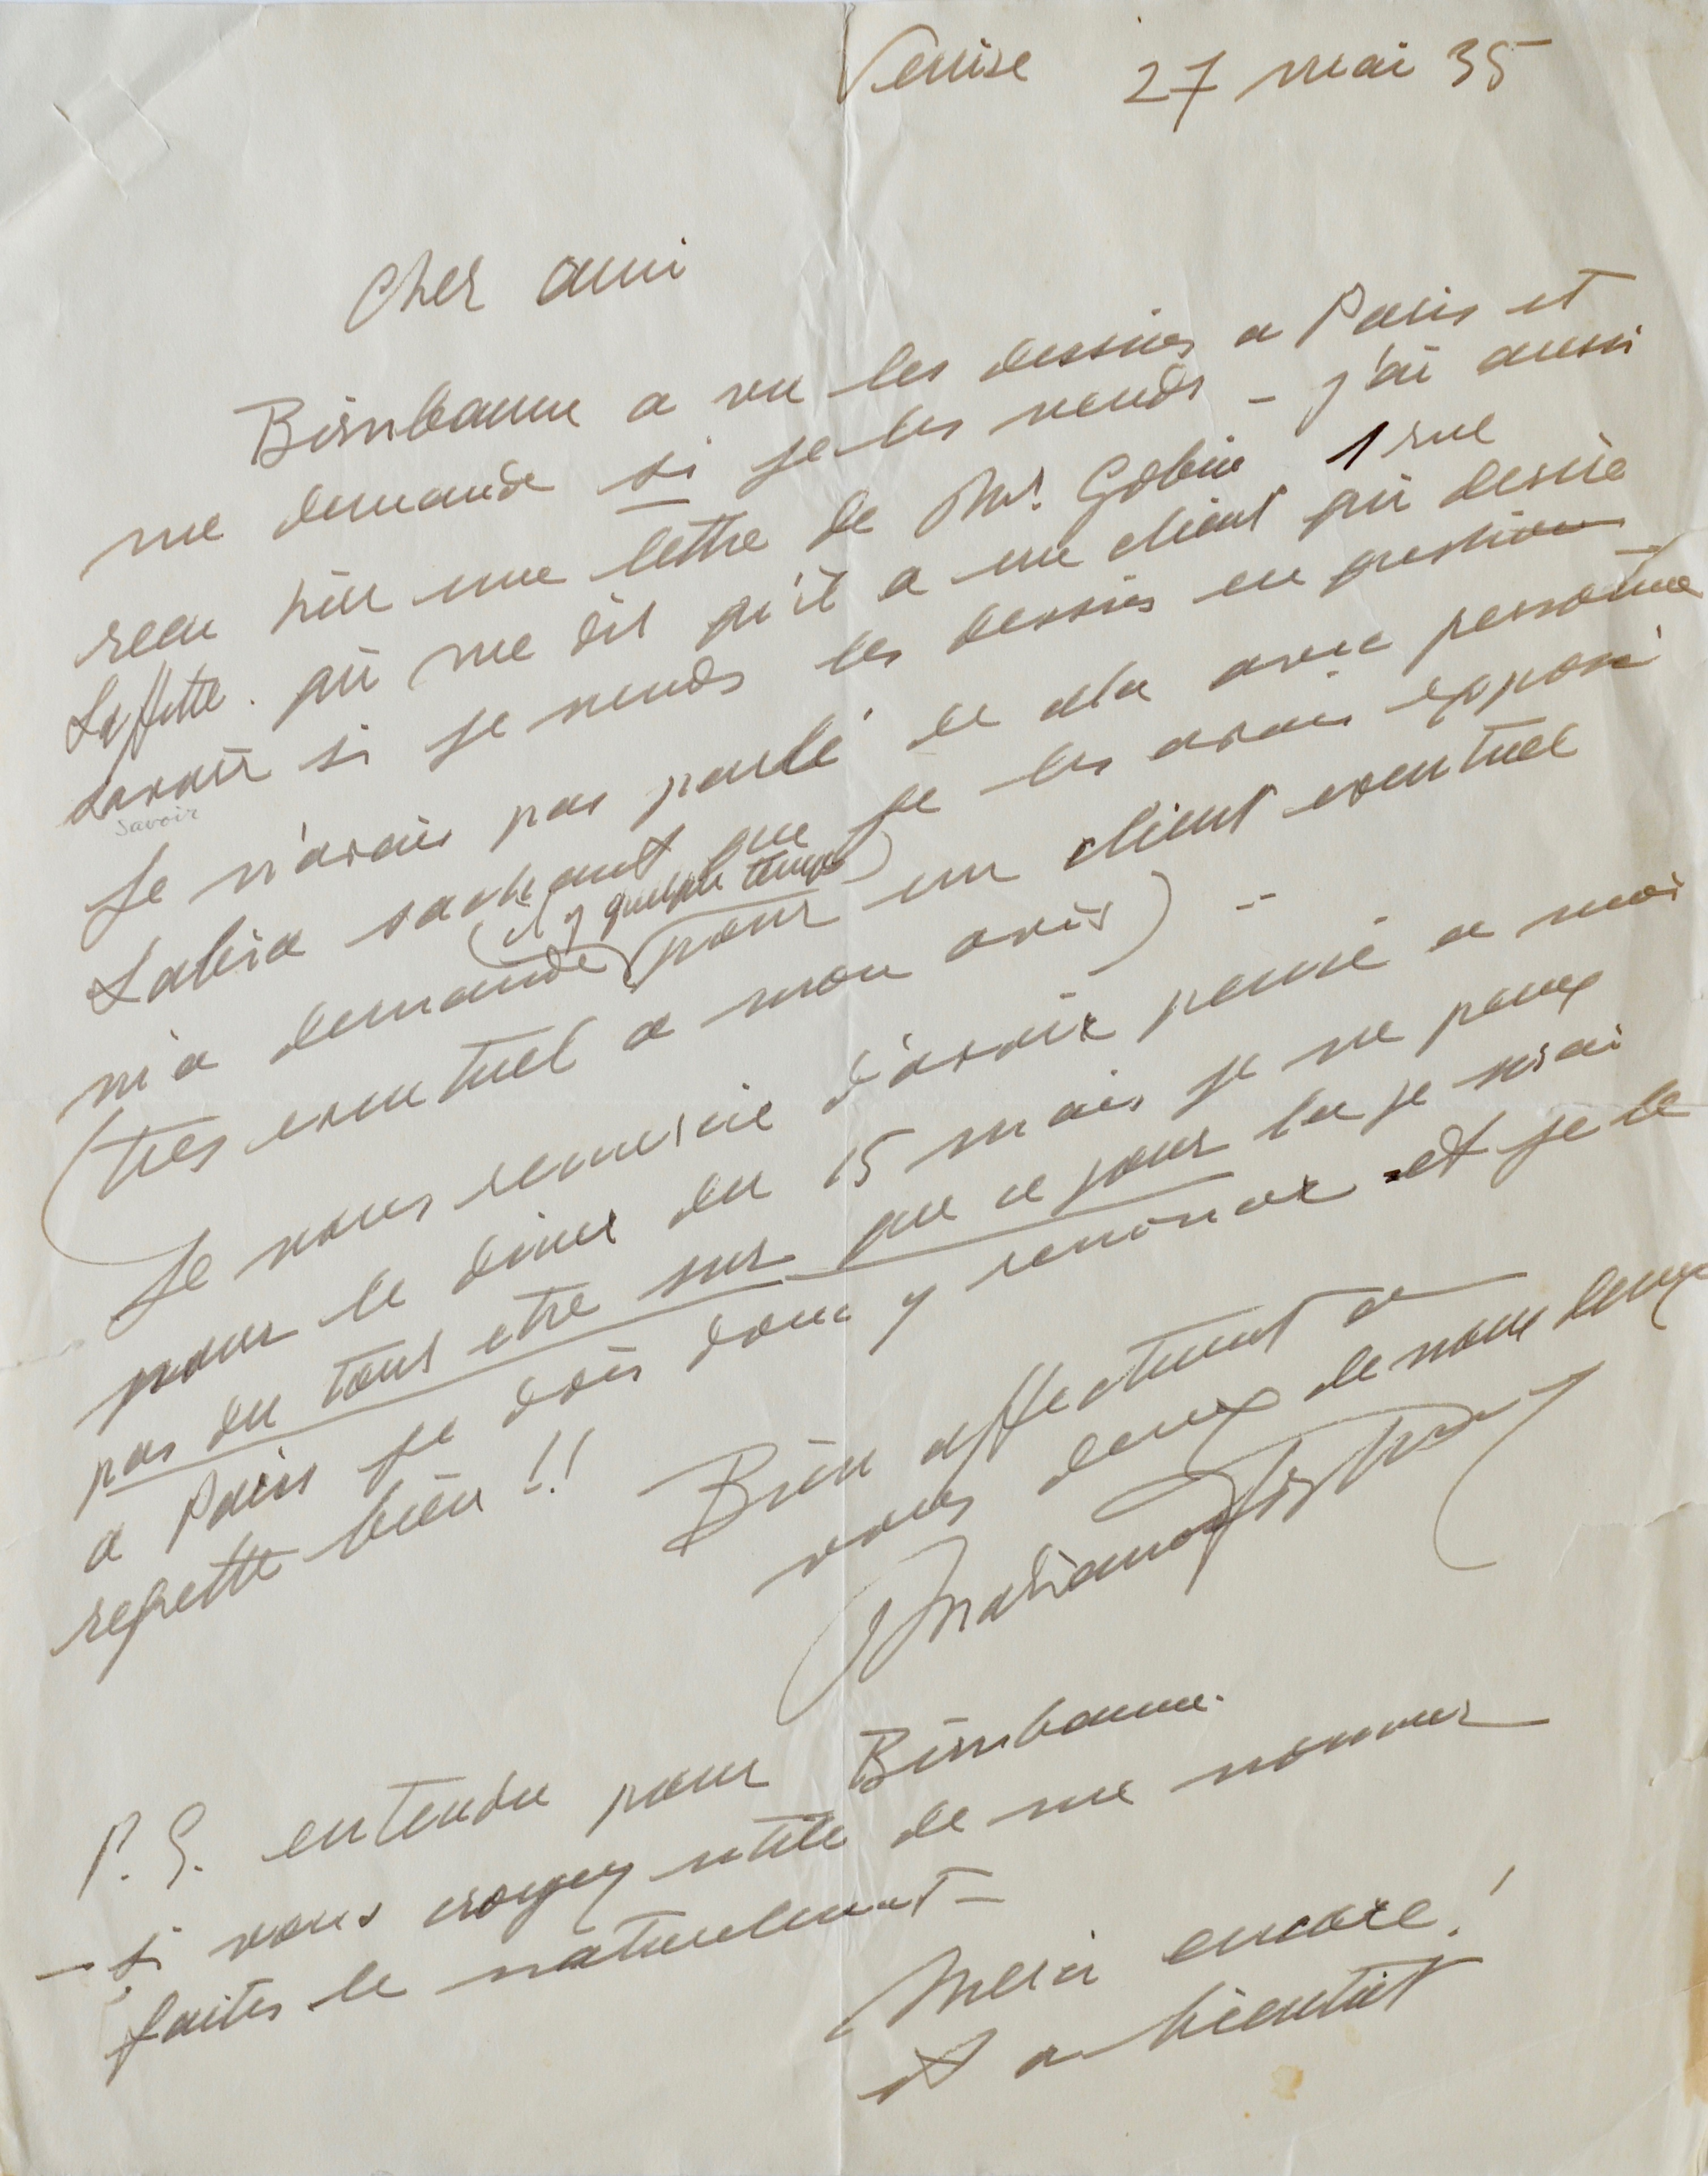 Venise 27 mai 35
Cher ami
Birnbaum a vu les dessins a Paris et
me demande si je les vends – j'ai aussi
recu hier une lettre de Mr. Gobin 1 rue
Laffitte. qui me dit qu'il a un client qui desire
savoir si je vends les dessins en question
savoir
Je n'avais pas parlé de cela avec personne –
Labia sachant que je les avais exposé
(il y quelque temps)
m'a demandé pour un client eventuel
(tres eventuel a mon avis) –
Je vous remercie d'avoir pensé a moi
pour le diner du 15 mais je ne peux
pas du tout etre sur que ce jour la je serai
a Paris je dois donc y renoncer et je le
regrette bien !!
Bien affectment a
vous deux de nous deux
Mariano Fortuny
P. S. entendu pour Birnbaum.
– si vous croyez utile de me nommer
faites le naturelement –
Merci encore !
et a bientôt